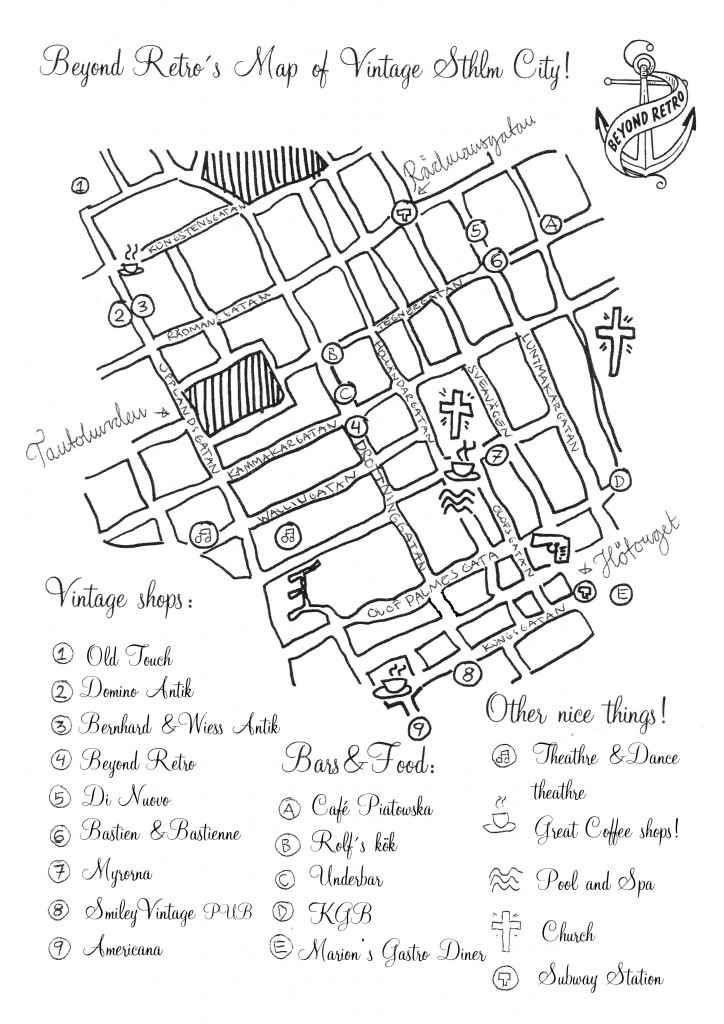 Beyond Retro's Map of Vintage Sthlm City!
BEYOND RETRO
Rådmansgatan
1
T
KUNGSTENSGATAN
5
A
6
2
3
RÅDMANSGATAM
TEGNERGATAN
B
HOLLÄNDARGATAN
LUNTMAKARGATAN
UPPLANDSGATAN
SVEAVÄGEN
C
4
KAMMAKARGATAN
DROTTNINGGATAN
7
WALLINGATAN
D
OLOFSGATAN
Hötorget
OLOF PALMES GATA
T
E
KUNGSGATAN
8
9
Vintage shops:
1 Old Touch
2 Domino Antik
3 Bernhard & Wiess Antik
4 Beyond Retro
5 Di Nuovo
6 Bastien & Bastienne
7 Myrorna
8 Smiley Vintage PUB
9 Americana
Bars & Food:
A Café Piatowska
B Rolf's kök
C Underbar
D KGB
E Marion's Gastro Diner
Other nice things!
Theathre & Dance
theathre
Great Coffee shops!
Pool and Spa
Church
T Subway Station